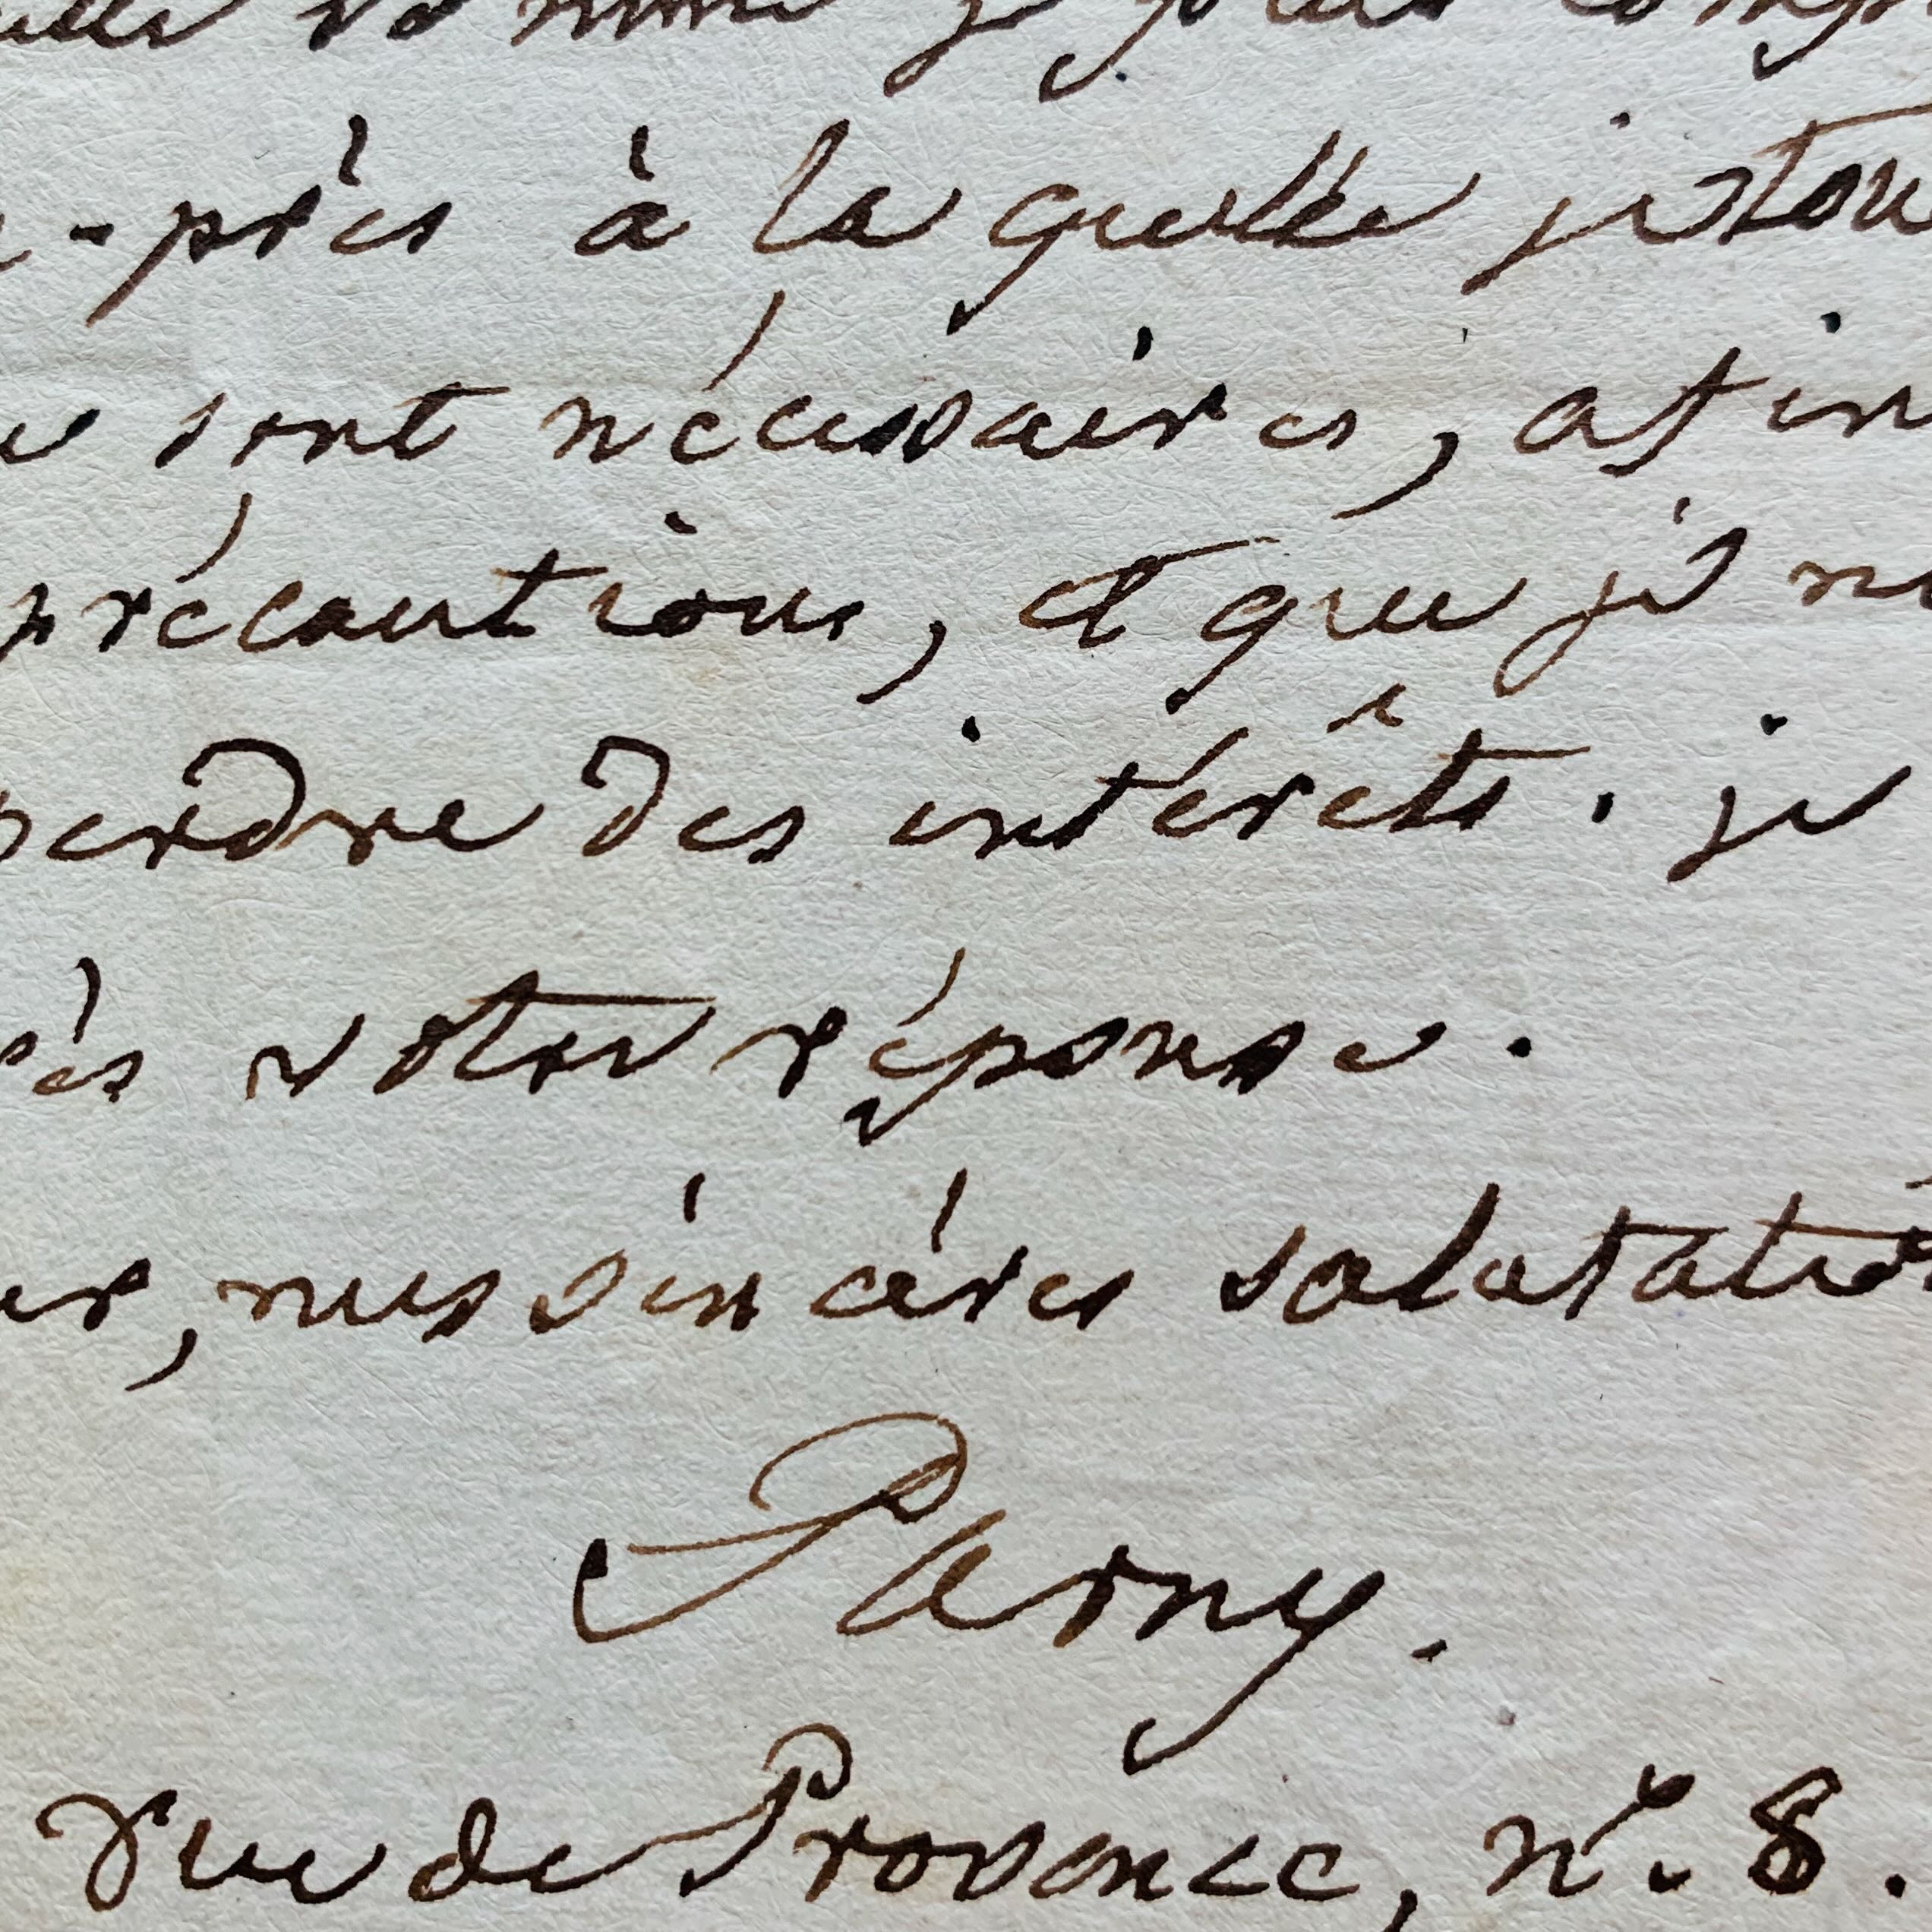 somme je puis comp
-près à la quelle je tou
sont nécessaires, afin
précautions, et que je ne
perdre des intérêts. je
ès votre réponse.
ur, mes sincéres salutatio
Parny.
rue de Provence, n.º 8.